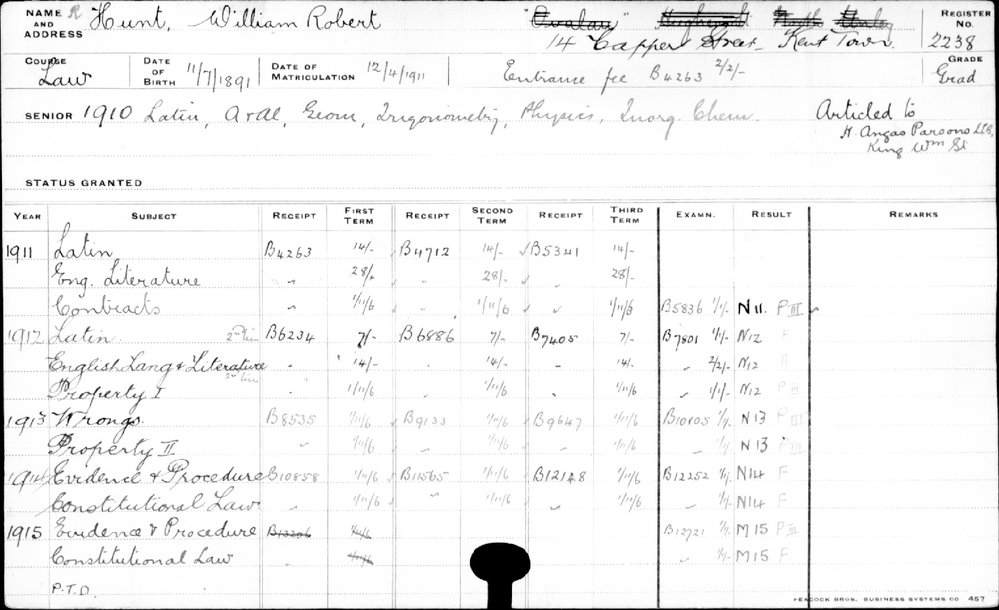 NAME R Hunt, William Robert "Ovalau" REGISTER
AND
ADDRESS 14 Capper Street Kent Town. No. 2238
COURSE Law DATE OF BIRTH 11/7/1891 DATE OF MATRICULATION 12/4/1911 Entrance fee B4263 2/2/- GRADE Grad
SENIOR 1910 Latin, A & Al, Geom, Trigonometry, Physics, Inorg. Chem. Articled to
H. Angas Parsons LLB,
King Wm St
STATUS GRANTED
YEAR SUBJECT RECEIPT FIRST TERM RECEIPT SECOND TERM RECEIPT THIRD TERM EXAMN. RESULT REMARKS
1911 Latin B4263 14/- B4712 14/- B5341 14/-
Eng. Literature " 28/- " 28/- " 28/-
Contracts " 1/11/6 " 1/11/6 " 1/11/6 B5836 1/1/- N11. P III
1912 Latin B6234 7/- B6886 7/- B7405 7/- B7801 1/1/- N12 F
English Lang & Literature " 14/- " 14/- " 14/- " 2/2/- N12
Property I " 1/11/6 " 1/11/6 " 1/11/6 " 1/1/- N12 P III
1913 Wrongs. B8535 1/11/6 B9133 1/11/6 B9647 1/11/6 B10105 1/1. N13 P III
Property II " 1/11/6 " 1/11/6 " 1/11/6 " 1/1. N13 P III
1914 Evidence & Procedure B10858 1/11/6 B11565 1/11/6 B12148 1/11/6 B12252 1/1. N14 F
Constitutional Law " 1/11/6 " 1/11/6 " 1/11/6 " 1/1. N14 F
1915 Evidence & Procedure B13206 1/11/6 B12721 1/1. M15 P III
Constitutional Law 1/11/6 " 1/1- M15 F
P.T.O.
PEACOCK BROS. BUSINESS SYSTEMS CO 457